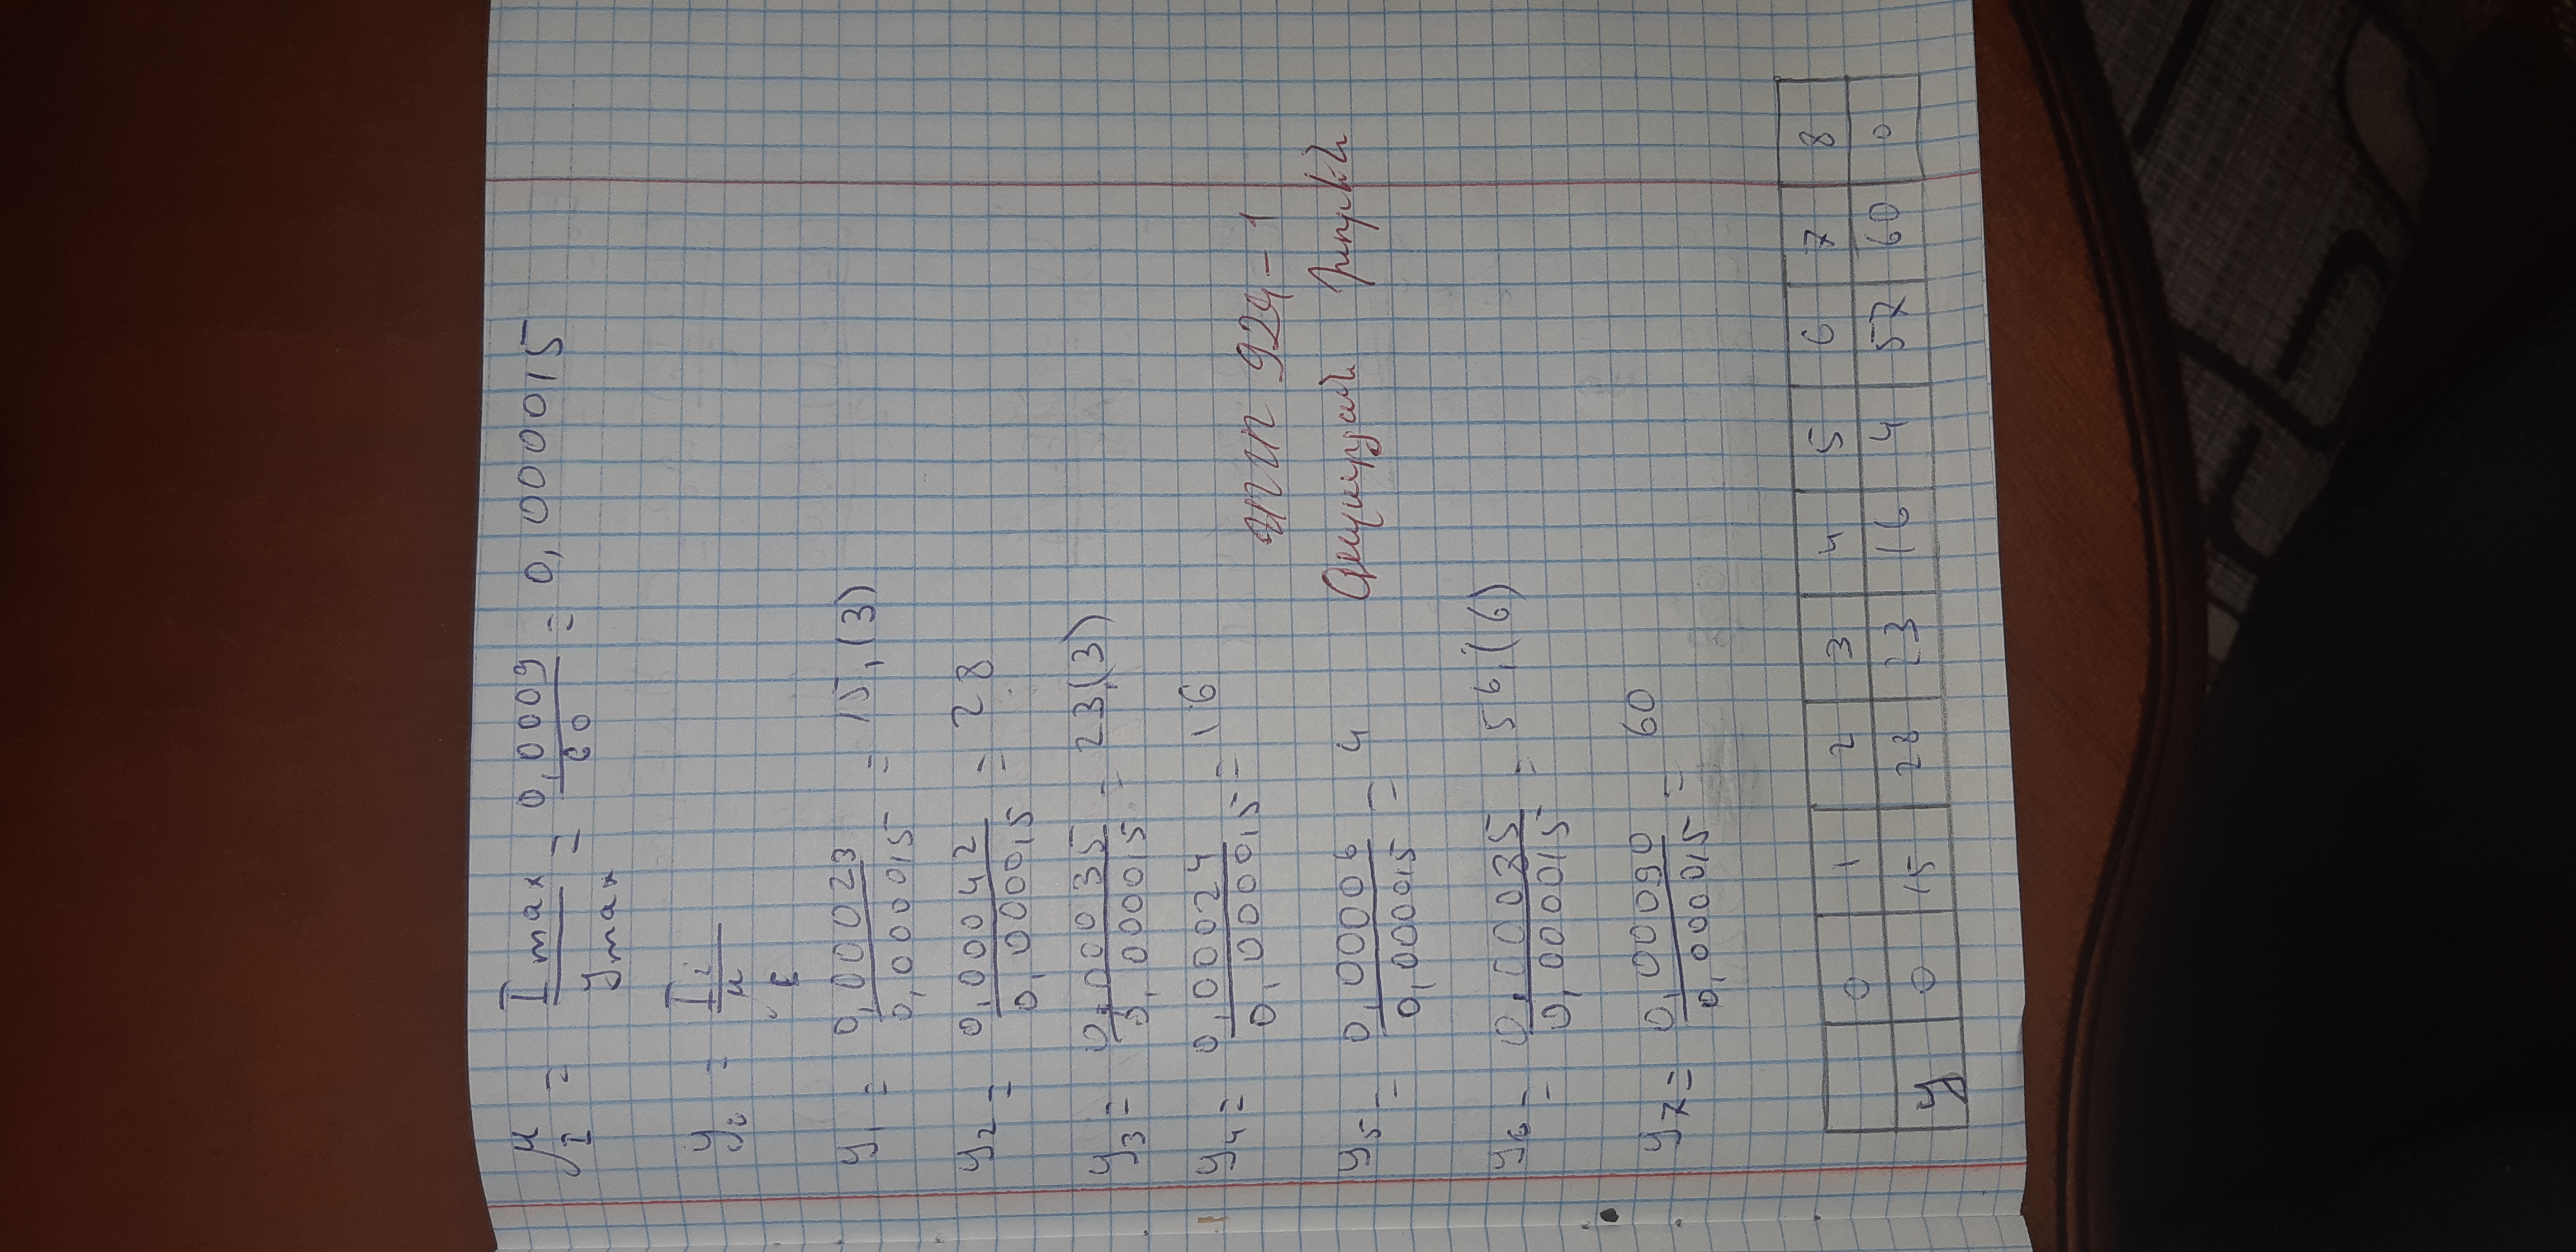 μ_I = I max / y max = 0,0009 / 60 = 0,000015
y_i = I_i / μ_I
y_1 = 0,00023 / 0,000015 = 15,(3)
y_2 = 0,00042 / 0,000015 = 28
y_3 = 0,00035 / 0,000015 = 23,(3)
y_4 = 0,00024 / 0,000015 = 16
924-1
y_5 = 0,00006 / 0,000015 = 4
y_6 = 0,00085 / 0,000015 = 56,(6)
y_7 = 0,00090 / 0,000015 = 60
0 1 2 3 4 5 6 7 8
y 0 15 28 23 16 4 57 60 0